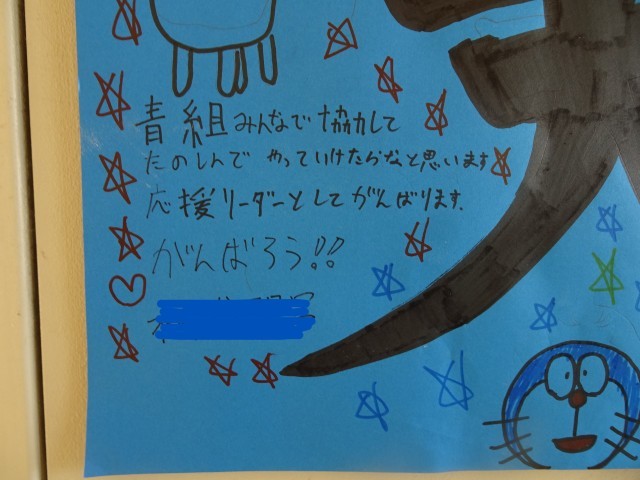 青組みんなで協力して
たのしんで やっていけたらなと思います
応援リーダーとしてがんばります。
がんばろう!!